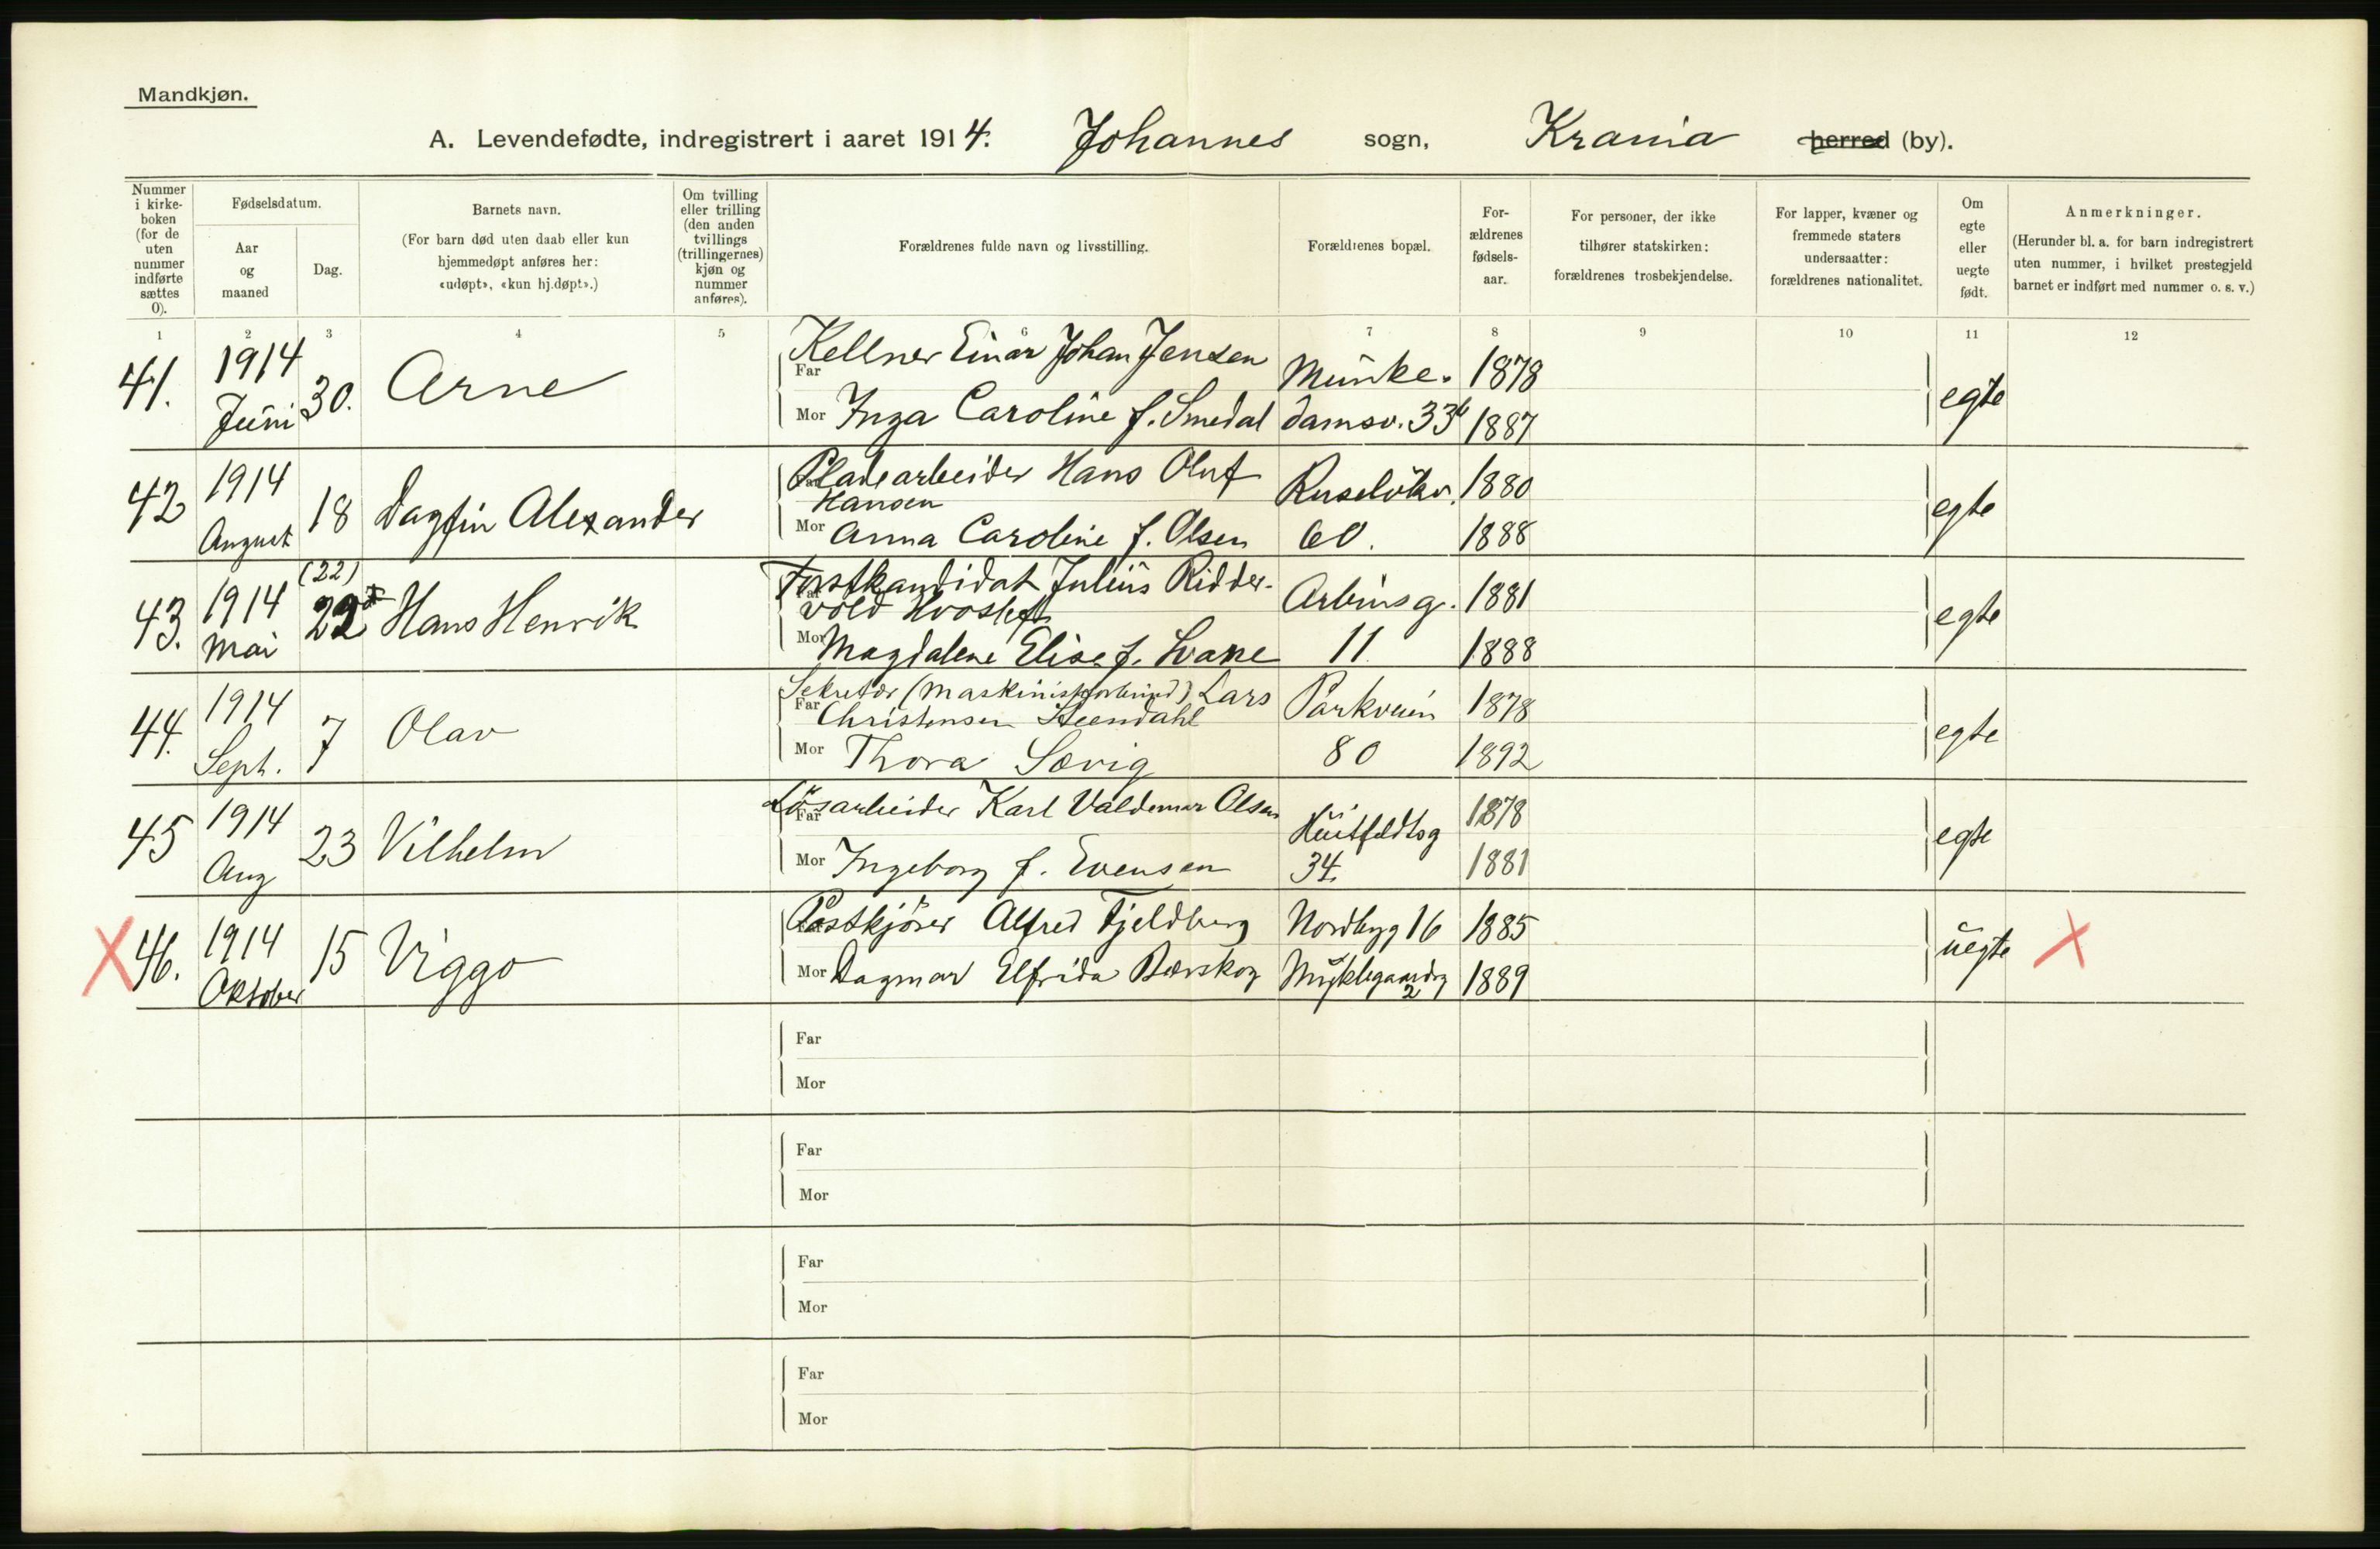 Mandkjøn.
A. Levendefødte, indregistrert i aaret 1914. Johannes sogn, Krania herred (by).
Nummer i kirke-boken (for de uten nummer indførte sættes 0).
Fødselsdatum.
Aar og maaned
Dag.
Barnets navn.
(For barn død uten daab eller kun hjemmedøpt anføres her: «udøpt», «kun hj.døpt».)
Om tvilling eller trilling (den anden tvillings (trillingernes) kjøn og nummer anføres).
Forældrenes fulde navn og livsstilling.
Forældrenes bopæl.
For-ældrenes fødsels-aar.
For personer, der ikke tilhører statskirken: forældrenes trosbekjendelse.
For lapper, kvæner og fremmede staters undersaatter: forældrenes nationalitet.
Om egte eller uegte født.
Anmerkninger.
(Herunder bl. a. for barn indregistrert uten nummer, i hvilket prestegjeld barnet er indført med nummer o. s. v.)
1 2 3 4 5 6 7 8 9 10 11 12
41. 1914 Juni 30. Arne
Far Kellner Einar Johan Jensen Munke. 1878
Mor Inga Caroline f. Smedal damsv. 33b 1887 egte
42 1914 August 18 Dagfin Alexander
Far Pladearbeider Hans Oluf Hansen Ruseløkv. 1880
Mor Anna Caroline f. Olsen 60. 1888 egte
43. 1914 Mai (22) 22 Hans Henrik
Far Forstkandidat Julius Riddervold Hvoslef Arbinsg. 1881
Mor Magdalene Elise f. Svane 11 1888 egte
44. 1914 Sept. 7 Olav
Far Sekretær (Maskinistforbund) Lars Christensen Steendahl Parkveien 1878
Mor Thora Sævig 80 1892 egte
45 1914 Aug 23 Vilhelm
Far Løsarbeider Karl Valdemar Olsen Huitfeldtsg 1878
Mor Ingeborg f. Evensen 34. 1881 egte
X 46. 1914 Oktober 15 Viggo
Far Postkjører Alfred Fjeldberg Nordbyg 16 1885
Mor Dagmar Elfrida Bærskog Myklegaardsg 2 1889 uegte X
Far
Mor
Far
Mor
Far
Mor
Far
Mor